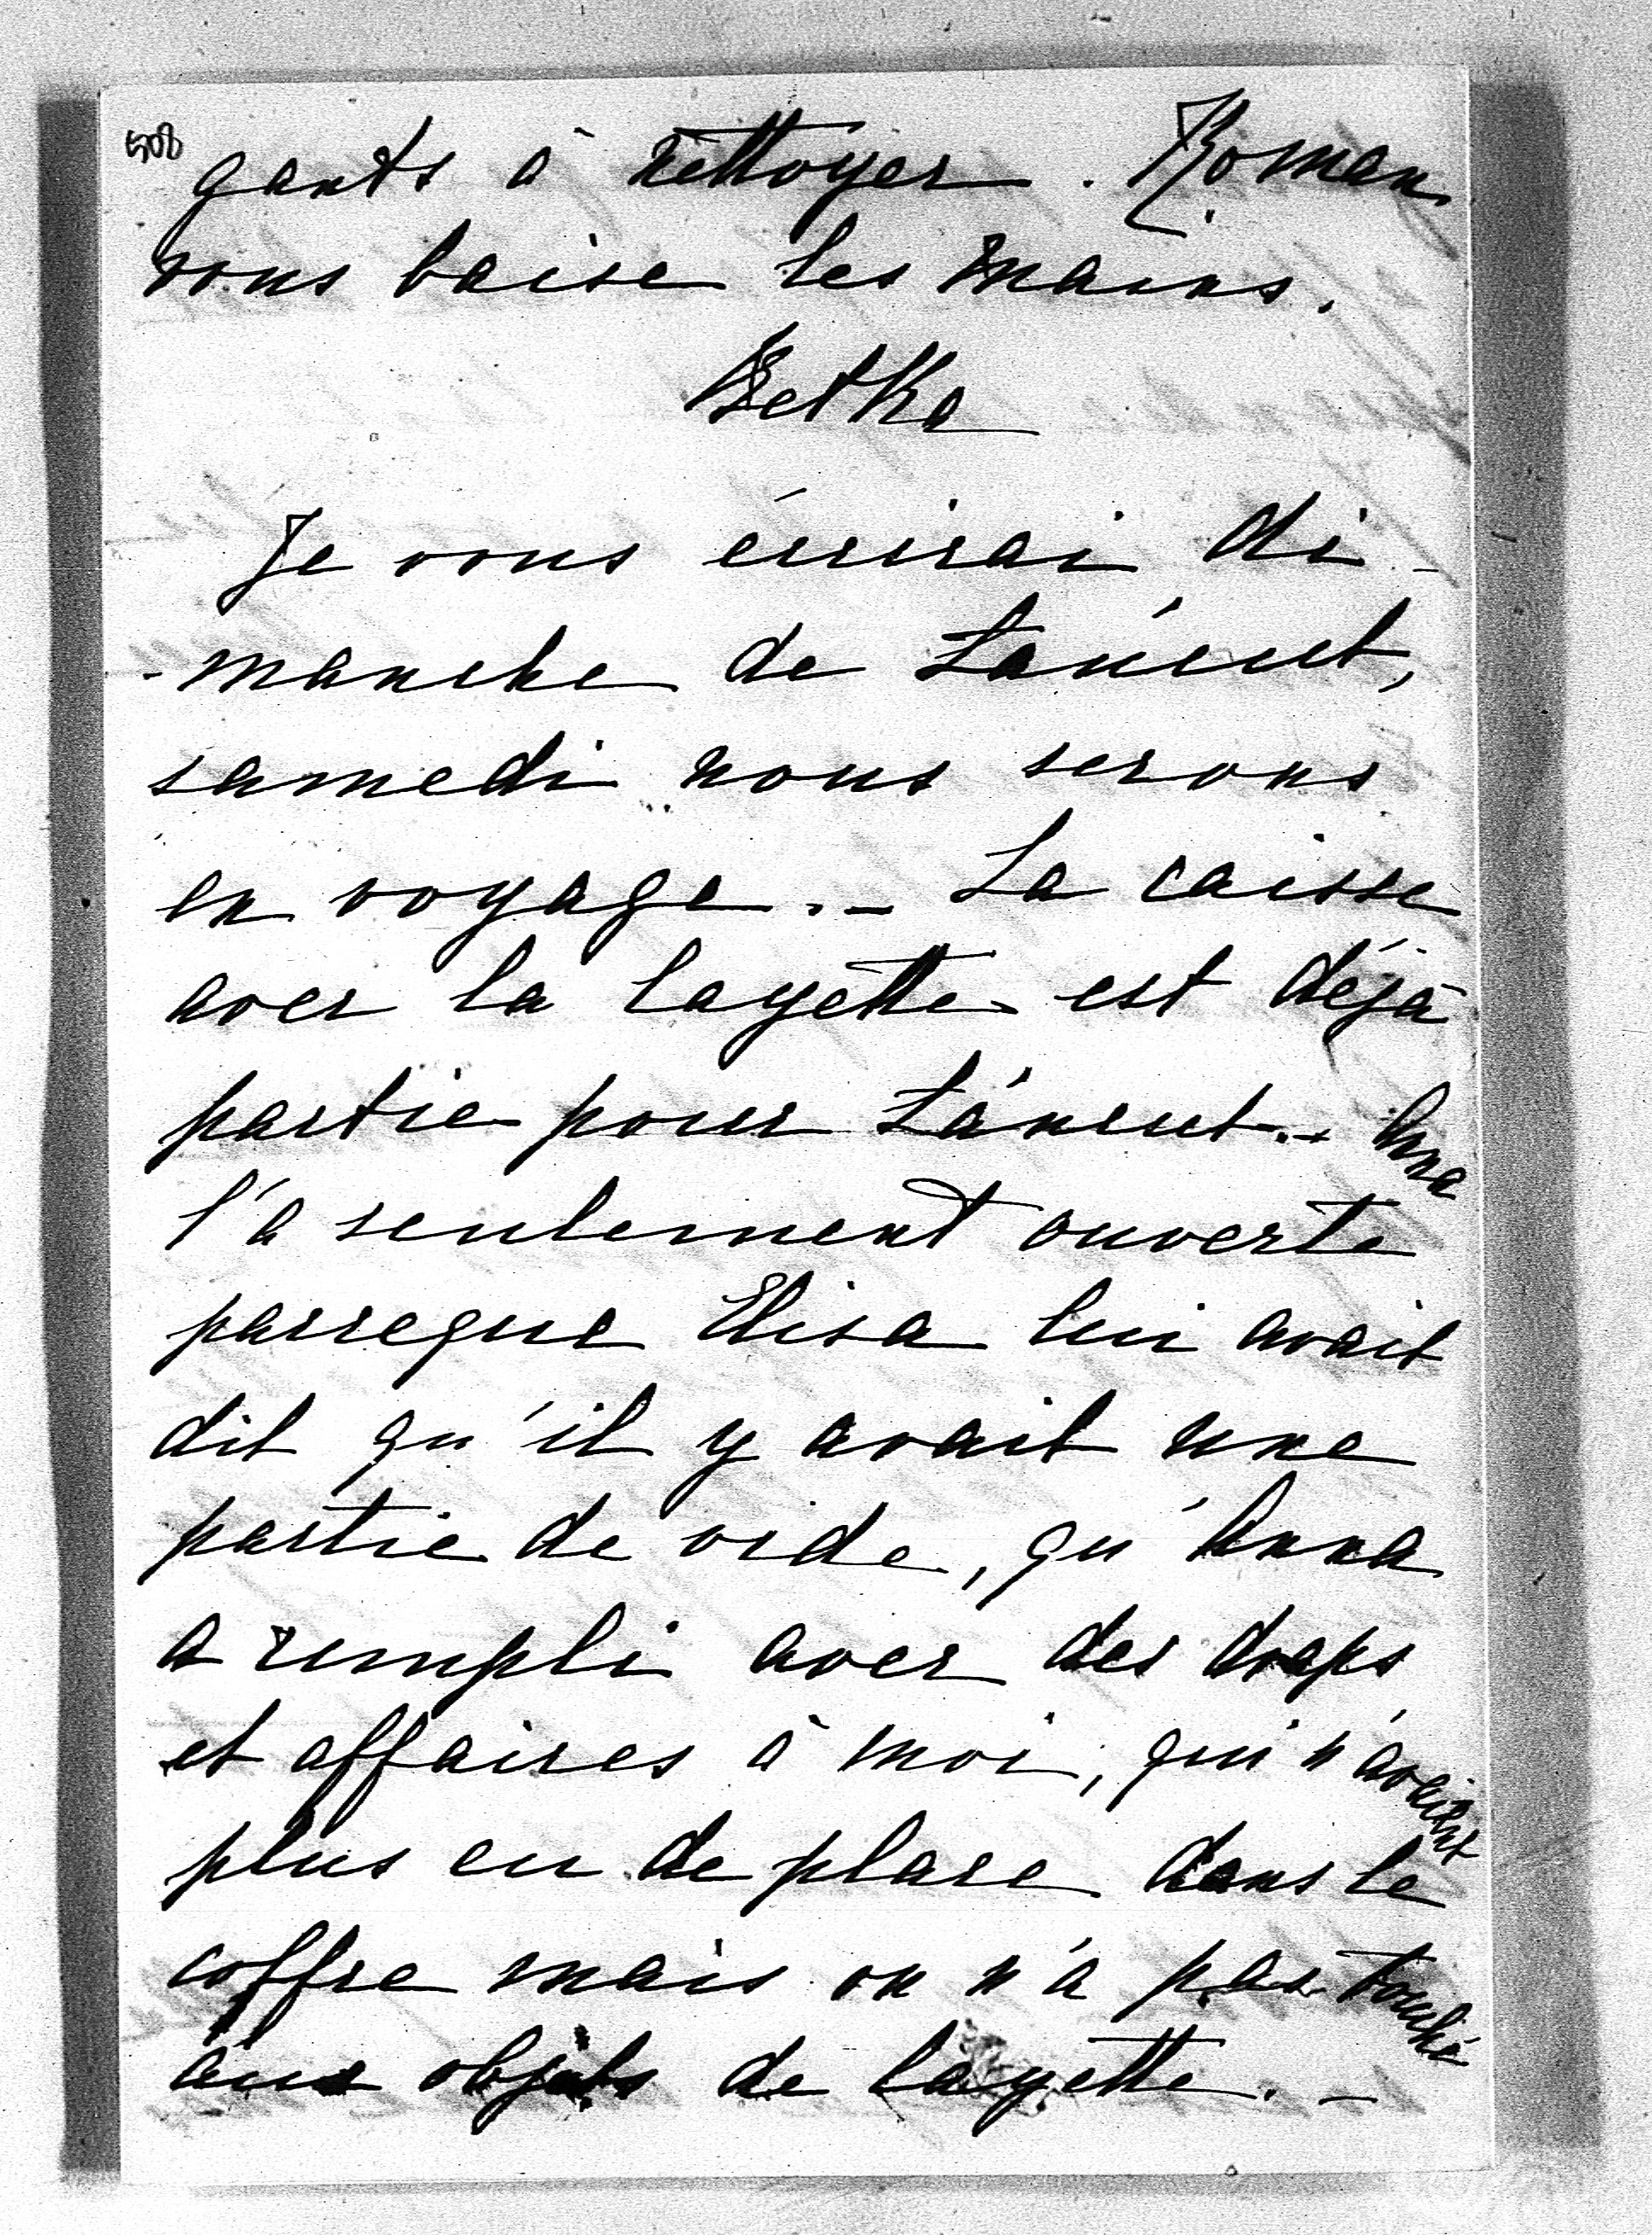 508
gants à nettoyer. Roman
vous baise les mains.
Betka
Je vous écrirai di-
-manche de Łańcut,
samedi nous serons
en voyage. – La caisse
avec la layette est déjà
partie pour Łańcut. – Anna
l'a seulement ouverte
parceque Elisa lui avait
dit qu'il y avait une
partie de vide, qu'Anna
a rempli avec des draps
et affaires à moi, qui n'avaient
plus eu de place dans le
coffre mais on n'a pas touché
aux objets de layette. –